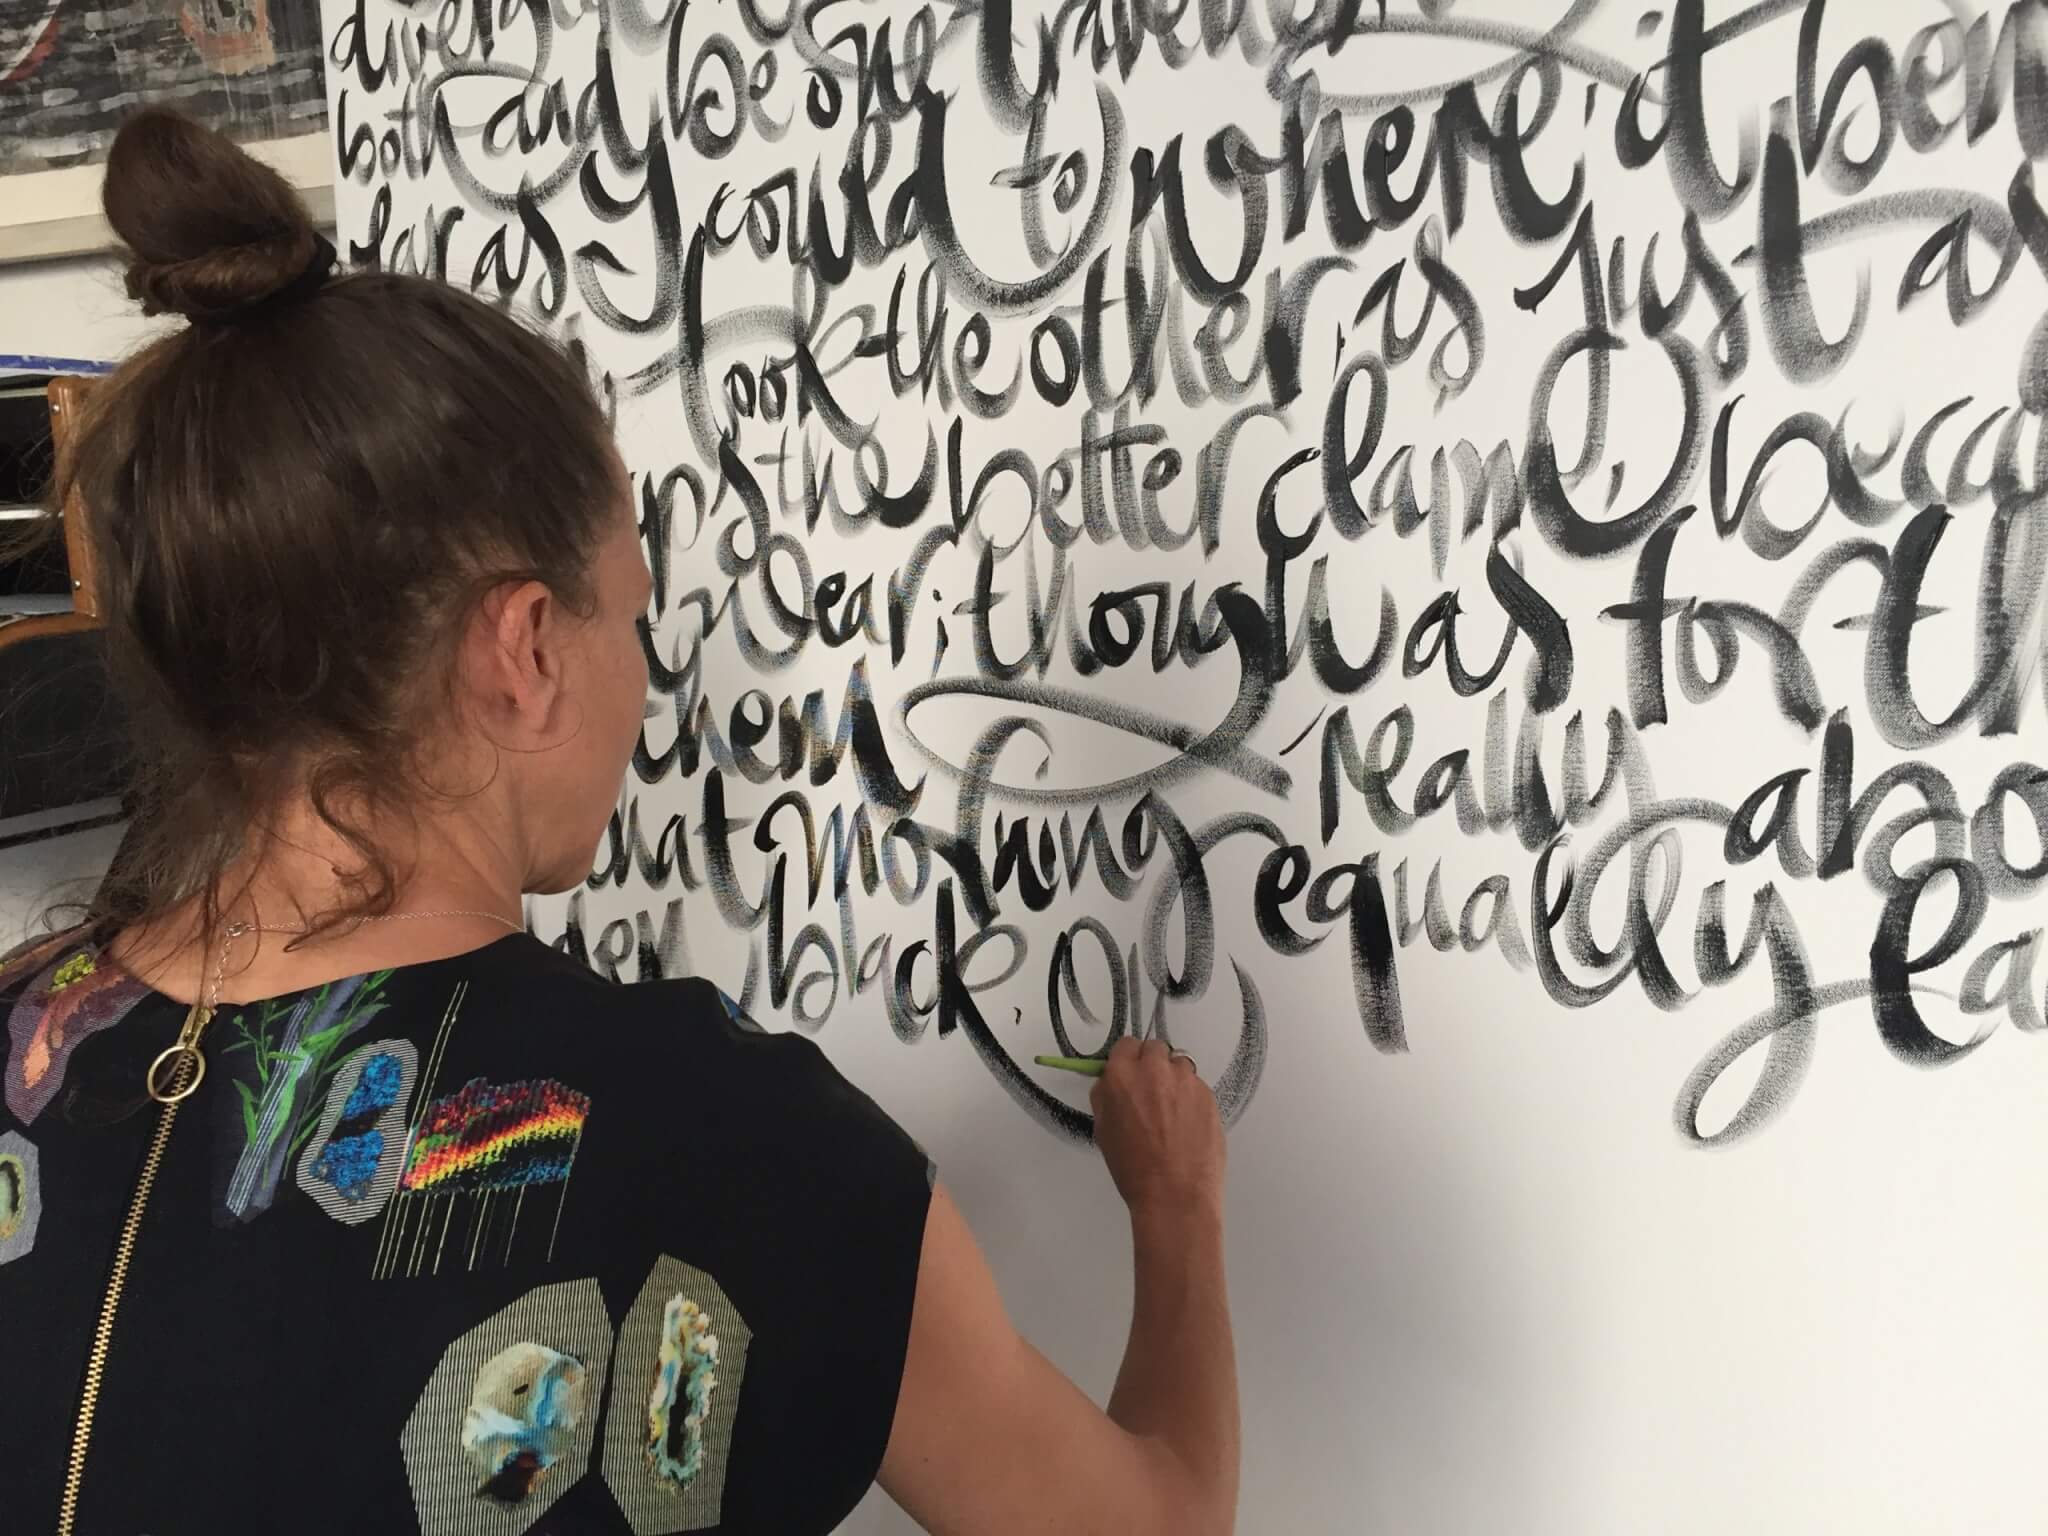 diverg
both and be one traveller
far as I could to where it ben
took the other, as just as
aps the better claim, beca
wear; though as for th
them really abo
that morning equally la
den black. Oh